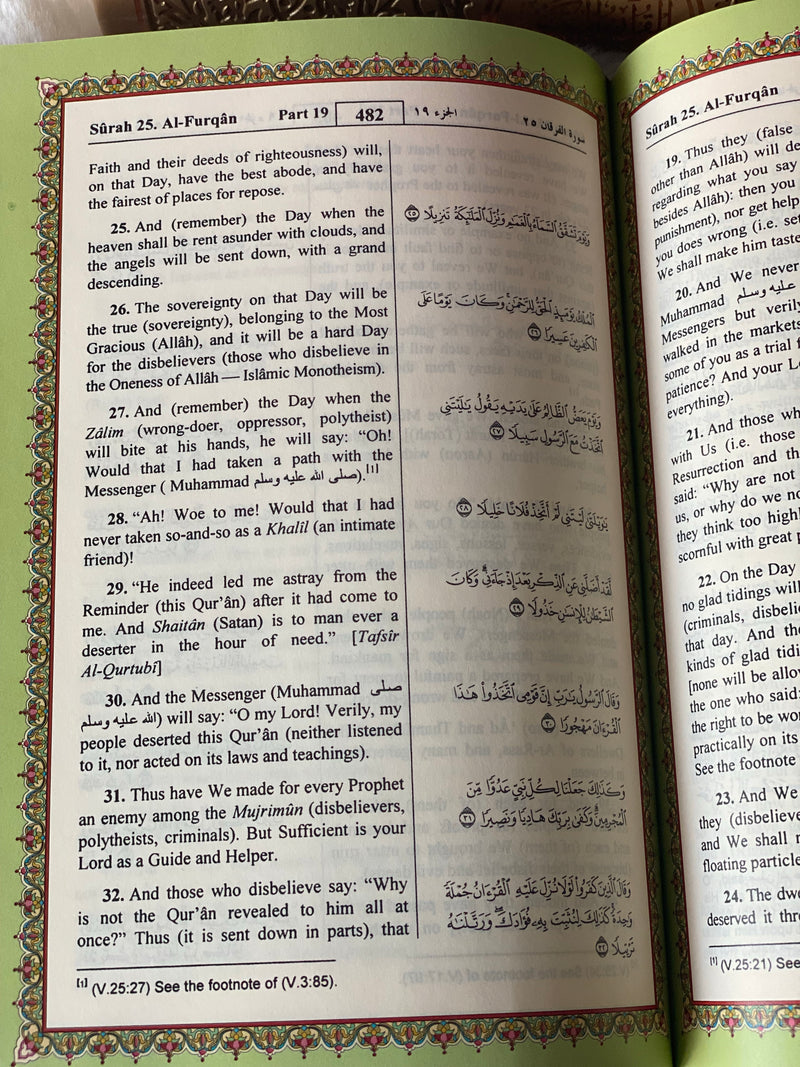 Sûrah 25. Al-Furqân Part 19 482 الجزء ١٩ سورة الفرقان ٢٥
Faith and their deeds of righteousness) will,
on that Day, have the best abode, and have
the fairest of places for repose.
25. And (remember) the Day when the
heaven shall be rent asunder with clouds, and
the angels will be sent down, with a grand
descending.
26. The sovereignty on that Day will be
the true (sovereignty), belonging to the Most
Gracious (Allâh), and it will be a hard Day
for the disbelievers (those who disbelieve in
the Oneness of Allâh — Islâmic Monotheism).
27. And (remember) the Day when the
Zâlim (wrong-doer, oppressor, polytheist)
will bite at his hands, he will say: “Oh!
Would that I had taken a path with the
Messenger ( Muhammad صلى الله عليه وسلم).[1]
28. “Ah! Woe to me! Would that I had
never taken so-and-so as a Khalîl (an intimate
friend)!
29. “He indeed led me astray from the
Reminder (this Qur’ân) after it had come to
me. And Shaitân (Satan) is to man ever a
deserter in the hour of need.” [Tafsîr
Al-Qurtubî]
30. And the Messenger (Muhammad صلى
الله عليه وسلم) will say: “O my Lord! Verily, my
people deserted this Qur’ân (neither listened
to it, nor acted on its laws and teachings).
31. Thus have We made for every Prophet
an enemy among the Mujrimûn (disbelievers,
polytheists, criminals). But Sufficient is your
Lord as a Guide and Helper.
32. And those who disbelieve say: “Why
is not the Qur’ân revealed to him all at
once?” Thus (it is sent down in parts), that
وَيَوْمَ تَشَقَّقُ السَّمَآءُ بِالْغَمَٰمِ وَنُزِّلَ الْمَلَٰٓئِكَةُ تَنزِيلًا ٢٥
الْمُلْكُ يَوْمَئِذٍ الْحَقُّ لِلرَّحْمَٰنِ وَكَانَ يَوْمًا عَلَى
الْكَٰفِرِينَ عَسِيرًا ٢٦
وَيَوْمَ يَعَضُّ الظَّالِمُ عَلَىٰ يَدَيْهِ يَقُولُ يَٰلَيْتَنِي
اتَّخَذْتُ مَعَ الرَّسُولِ سَبِيلًا ٢٧
يَٰوَيْلَتَىٰ لَيْتَنِي لَمْ أَتَّخِذْ فُلَانًا خَلِيلًا ٢٨
لَّقَدْ أَضَلَّنِي عَنِ الذِّكْرِ بَعْدَ إِذْ جَآءَنِي وَكَانَ
الشَّيْطَٰنُ لِلْإِنسَٰنِ خَذُولًا ٢٩
وَقَالَ الرَّسُولُ يَٰرَبِّ إِنَّ قَوْمِي اتَّخَذُوا۟ هَٰذَا
الْقُرْءَانَ مَهْجُورًا ٣٠
وَكَذَٰلِكَ جَعَلْنَا لِكُلِّ نَبِيٍّ عَدُوًّا مِّنَ
الْمُجْرِمِينَ وَكَفَىٰ بِرَبِّكَ هَادِيًا وَنَصِيرًا ٣١
وَقَالَ الَّذِينَ كَفَرُوا۟ لَوْلَا نُزِّلَ عَلَيْهِ الْقُرْءَانُ جُمْلَةً
وَٰحِدَةً كَذَٰلِكَ لِنُثَبِّتَ بِهِۦ فُؤَادَكَ وَرَتَّلْنَٰهُ
تَرْتِيلًا ٣٢
[1] (V.25:27) See the footnote of (V.3:85).
Sûrah 25. Al-Furqân
19. Thus they (false
other than Allâh) will de
regarding what you say
besides Allâh): then you
punishment), nor get help
you does wrong (i.e. set
We shall make him taste
20. And We never
Muhammad صلى الله عليه وسلم
Messengers but verily
walked in the markets
some of you as a trial f
patience? And your L
everything).
21. And those wh
with Us (i.e. those
Resurrection and th
said: “Why are not
us, or why do we no
they think too high
scornful with great p
22. On the Day
no glad tidings will
(criminals, disbelie
that day. And the
kinds of glad tidi
[none will be allow
the one who said:
the right to be wor
practically on its
See the footnote
23. And We
they (disbelieve
and We shall m
floating particle
24. The dwe
deserved it thro
[1] (V.25:21) See